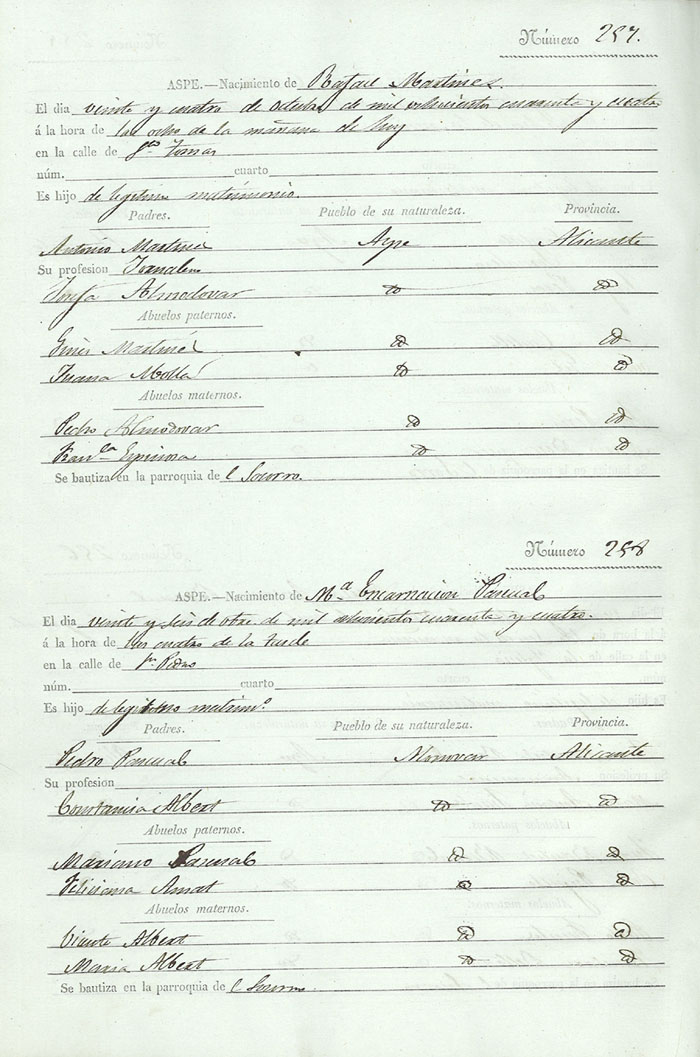 Número 257.
ASPE.—Nacimiento de Rafael Martinez.
El dia veinte y cuatro de Octubre de mil ochocientos cuarenta y cuatro
á la hora de las ocho de la mañana de hoy
en la calle de Sto Tomas
núm. cuarto
Es hijo de legitimo matrimonio.
Padres. Pueblo de su naturaleza. Provincia.
Antonio Martinez Aspe Alicante
Su profesion Jornalero
Josefa Almodovar id id
Abuelos paternos.
Gines Martinez id id
Juana Mollá id id
Abuelos maternos.
Pedro Almodovar id id
Franca Espinosa id id
Se bautiza en la parroquia de l Socorro.
Número 258
ASPE.—Nacimiento de Ma Encarnacion Pascual
El dia veinte y seis de obre. de mil ochocientos cuarenta y cuatro.
á la hora de las cuatro de la tarde
en la calle de Sn Pedro
núm. cuarto
Es hijo de legitimo matrimo
Padres. Pueblo de su naturaleza. Provincia.
Pedro Pascual Monovar Alicante
Su profesion
Constansa Albert id id
Abuelos paternos.
Mariano Pascual id id
Feliciana Amat id id
Abuelos maternos.
Vicente Albert id id
Maria Albert id id
Se bautiza en la parroquia de l Socorro.